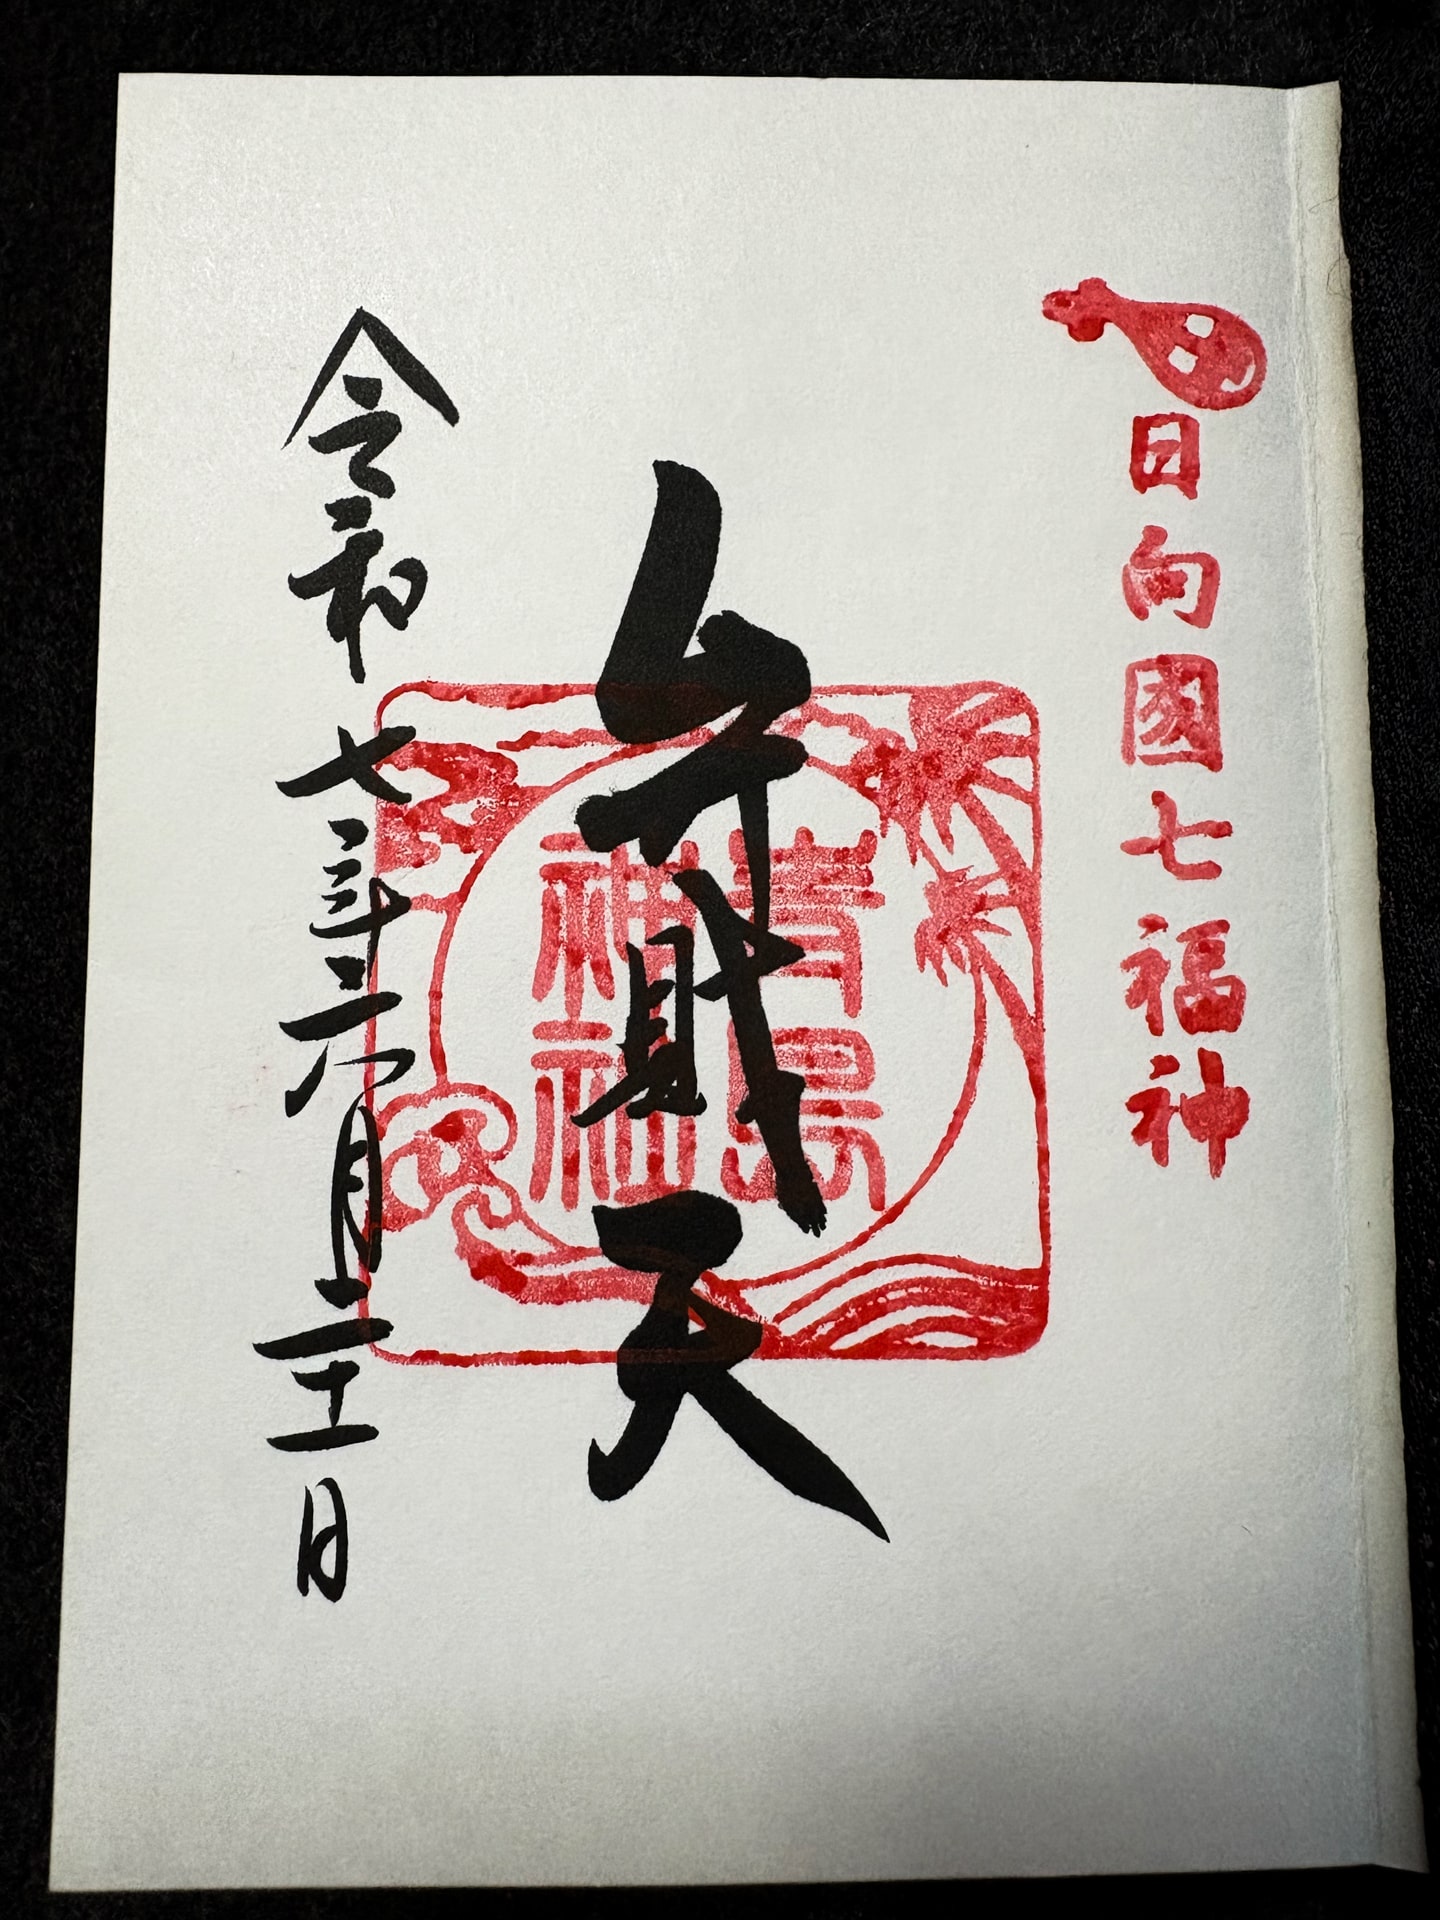 日向國七福神
弁財天
青島
神社
令和七年六月二十一日